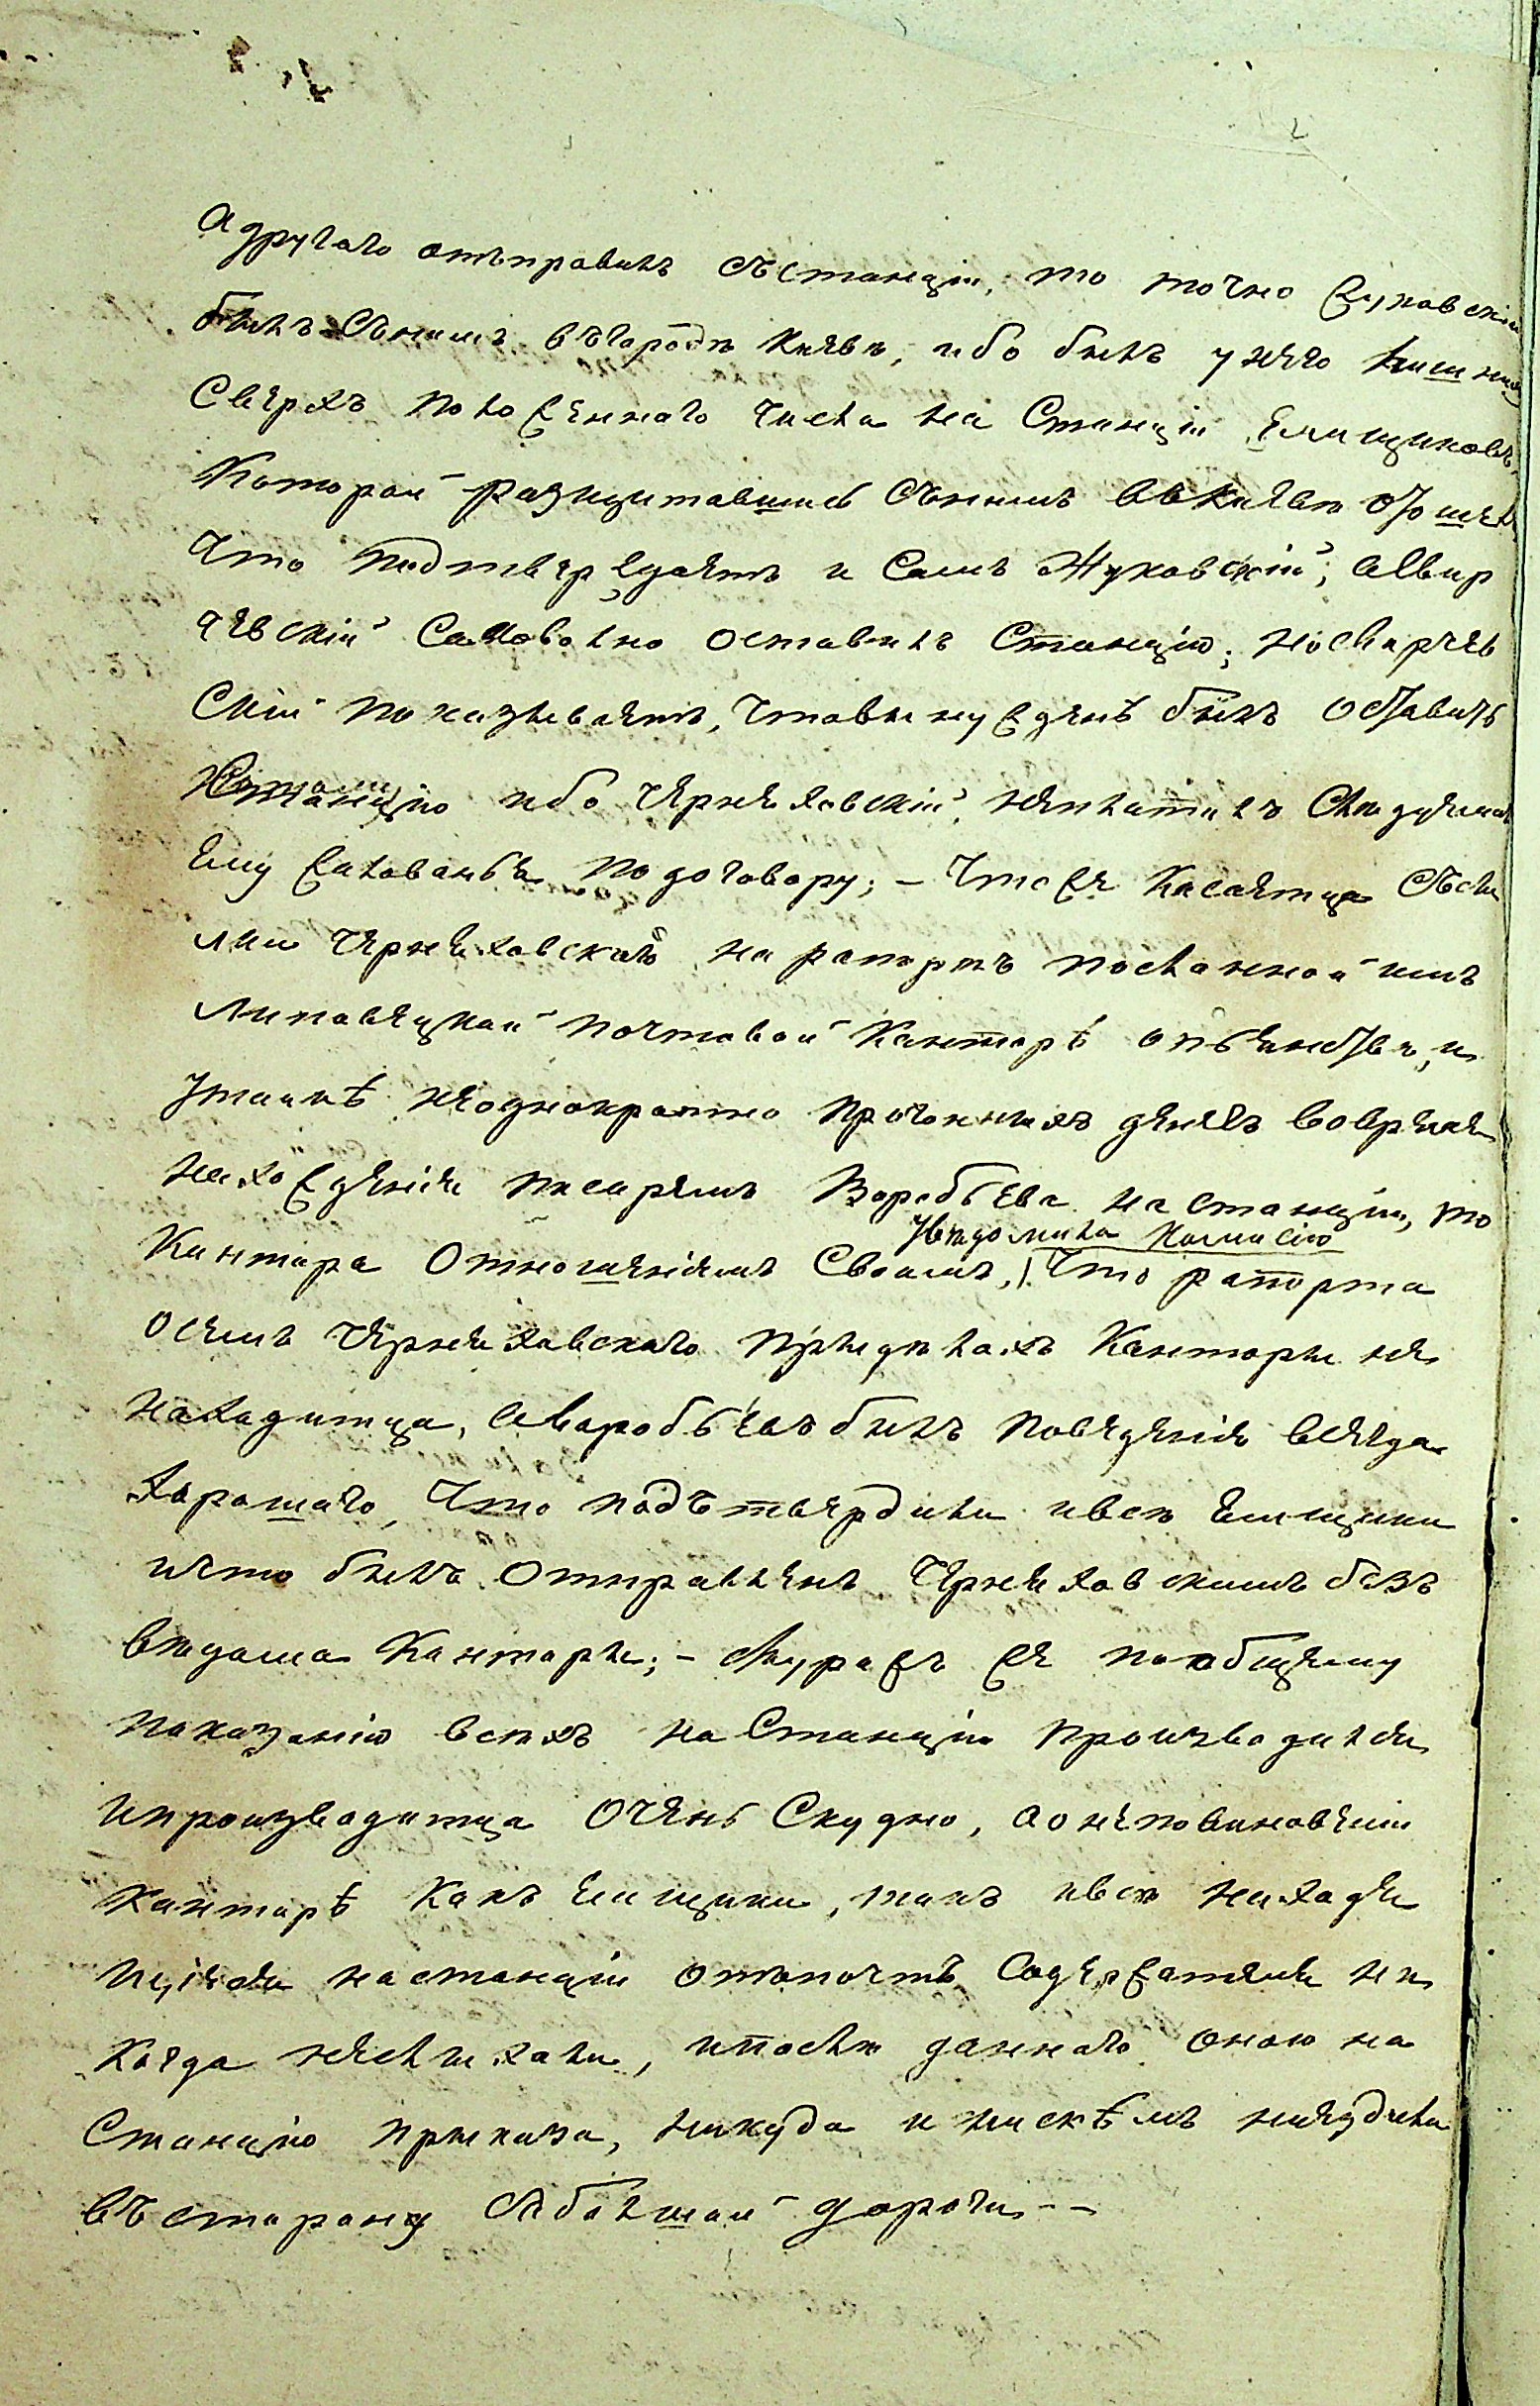 а другаго отъправилъ състанціи, то точно Жуковскій
былъ сънимъ въгородѣ Киевѣ, ибо былъ у него лишній
сверхъ положеннаго числа на Станціи Емщиковъ,
Которой разщитавшись сънимъ въКиевѣ отошелъ
Что подтверждаетъ и Самъ Жуковскій; аСвир
чевскій Самовольно оставилъ Станцію; но Свирчев
скій показываетъ, Что вынужденъ былъ оставить
Станцію ибо Чернеховскій неплатилъ Следуемого
Ему жалованья по договору; – Чтоже Касаетца съсы
лки Чернеховскаго на рапортъ посланной имъ
Липовецкой почтовой Канторѣ опьянстве, и
утайкѣ неоднократно прогонныхъ денегъ вовремя
нахожденія писаремъ Воробьева на станціи, то
Кантора Отношеніемъ Своимъ, уведомила Комисію Что рапорта
осемъ Чернеховскаго прыделахъ Канторы не
находитца, аВоробьевъ былъ поведенія всегда
хорошаго, Что подътвердили ивсе Емщики
ичто былъ Отправленъ Чернеховскимъ безъ
ведома Канторы; – Фуражъ же пообщему
показанію всехъ на Станціи производился
ипроизводитца Очень Скудно, аонеповиновеніи
Канторѣ Какъ Емщики, такъ ивсе находя
щіеся настанціи отъпочтъ Содержателя ни
когда неслыхали, ипосле даннаго оною на
Станцію прыказа, никуда и нискѣмъ неездили
въсторону събольшой дороги – –